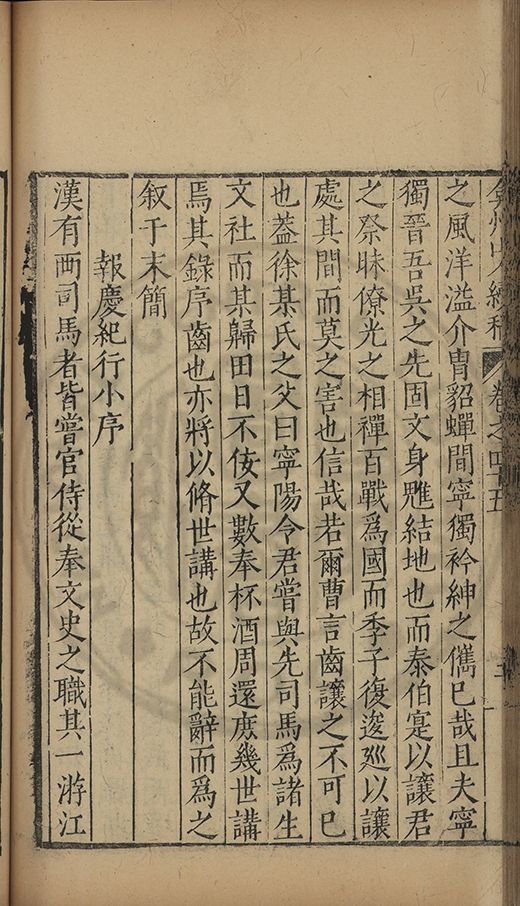 弇州山人續稿 卷之四十五
之風洋溢介胄貂蟬間寧獨衿紳之儁已哉且夫寧
獨晉吾吳之先固文身魋結地也而泰伯寔以讓君
之祭昧僚光之相禪百戰爲國而季子復逡廵以讓
處其間而莫之害也信哉若爾曹言齒讓之不可已
也葢徐某氏之父曰寧陽令君嘗與先司馬爲諸生
文社而某歸田日不佞又數奉杯酒周還庶幾世講
焉其錄序齒也亦將以脩世講也故不能辭而爲之
叙于末簡
報慶紀行小序
漢有兩司馬者皆嘗官侍從奉文史之職其一游江